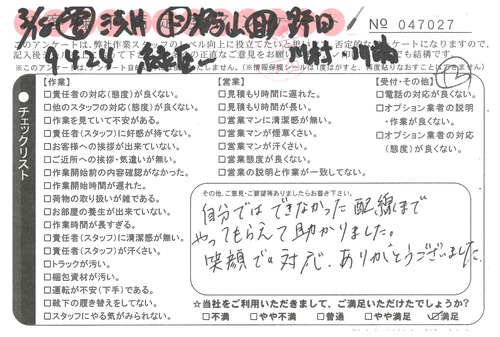 No 047027
チェックリスト
【作業】
□責任者の対応(態度)が良くない。
□他のスタッフの対応(態度)が良くない。
□作業を見ていて不安がある。
□責任者(スタッフ)に好感が持てない。
□お客様への挨拶が出来ていない。
□ご近所への挨拶・気遣いが無い。
□作業開始前の内容確認がなかった。
□作業開始時間が遅れた。
□荷物の取り扱いが雑である。
□お部屋の養生が出来ていない。
□作業時間が長すぎる。
□責任者(スタッフ)に清潔感が無い。
□責任者(スタッフ)が汗くさい。
□トラックが汚い。
□梱包資材が汚い。
□運転が不安(下手)である。
□靴下の履き替えをしてない。
□スタッフにやる気がみられない。
【営業】
□見積もり時間に遅れた。
□見積もり時間が長い。
□営業マンに清潔感が無い。
□営業マンが煙草くさい。
□営業マンが汗くさい。
□営業態度が良くない。
□営業の説明と作業が一致してない。
【受付・その他】
□電話の対応が良くない。
□オプション業者の説明
・作業が良くない。
□オプション業者の対応
(態度)が良くない。
その他、ご意見・ご要望等ありましたらお書き下さい。
自分ではできなかった配線まで
やってもらえて助かりました。
笑顔での対応、ありがとうございました
☆当社をご利用いただきまして、ご満足いただけたでしょうか?
□不満 □やや不満 □普通 □やや満足 ☑満足